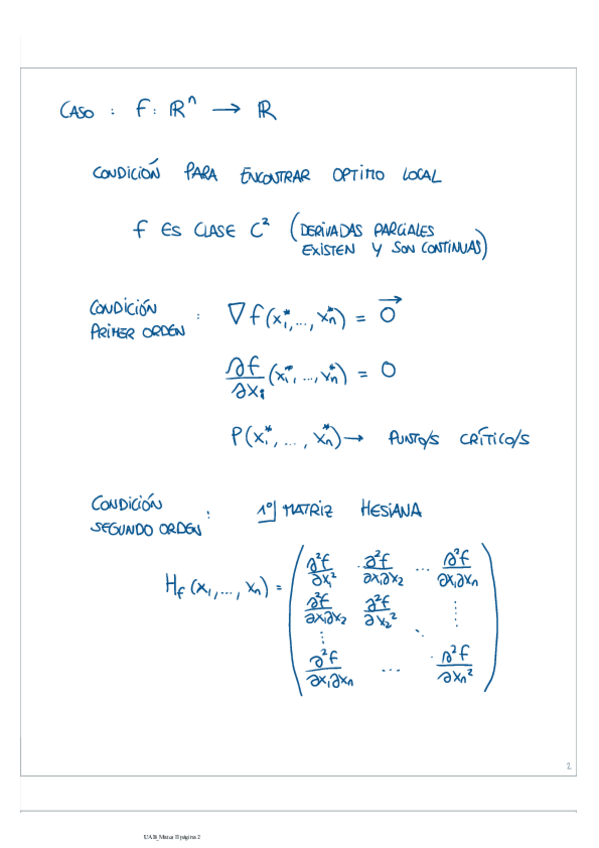 CASO : f: ℝⁿ → ℝ
CONDICIÓN PARA ENCONTRAR OPTIMO LOCAL
f ES CLASE C² (DERIVADAS PARCIALES
EXISTEN Y SON CONTINUAS)
CONDICIÓN
PRIMER ORDEN : ∇f(x₁*,...,xₙ*) = 0⃗
∂f/∂xᵢ (x₁*, ..., xₙ*) = 0
P(x₁*, ..., xₙ*) → PUNTO/S CRÍTICO/S
CONDICIÓN
SEGUNDO ORDEN : 1º] MATRIZ HESIANA
H_f (x₁,..., xₙ) =
∂²f/∂x₁² ∂²f/∂x₁∂x₂ ... ∂²f/∂x₁∂xₙ
∂²f/∂x₁∂x₂ ∂²f/∂x₂² ⋮
⋮ ⋱
∂²f/∂x₁∂xₙ ... ∂²f/∂xₙ²
2
UAB_Mates II página 2